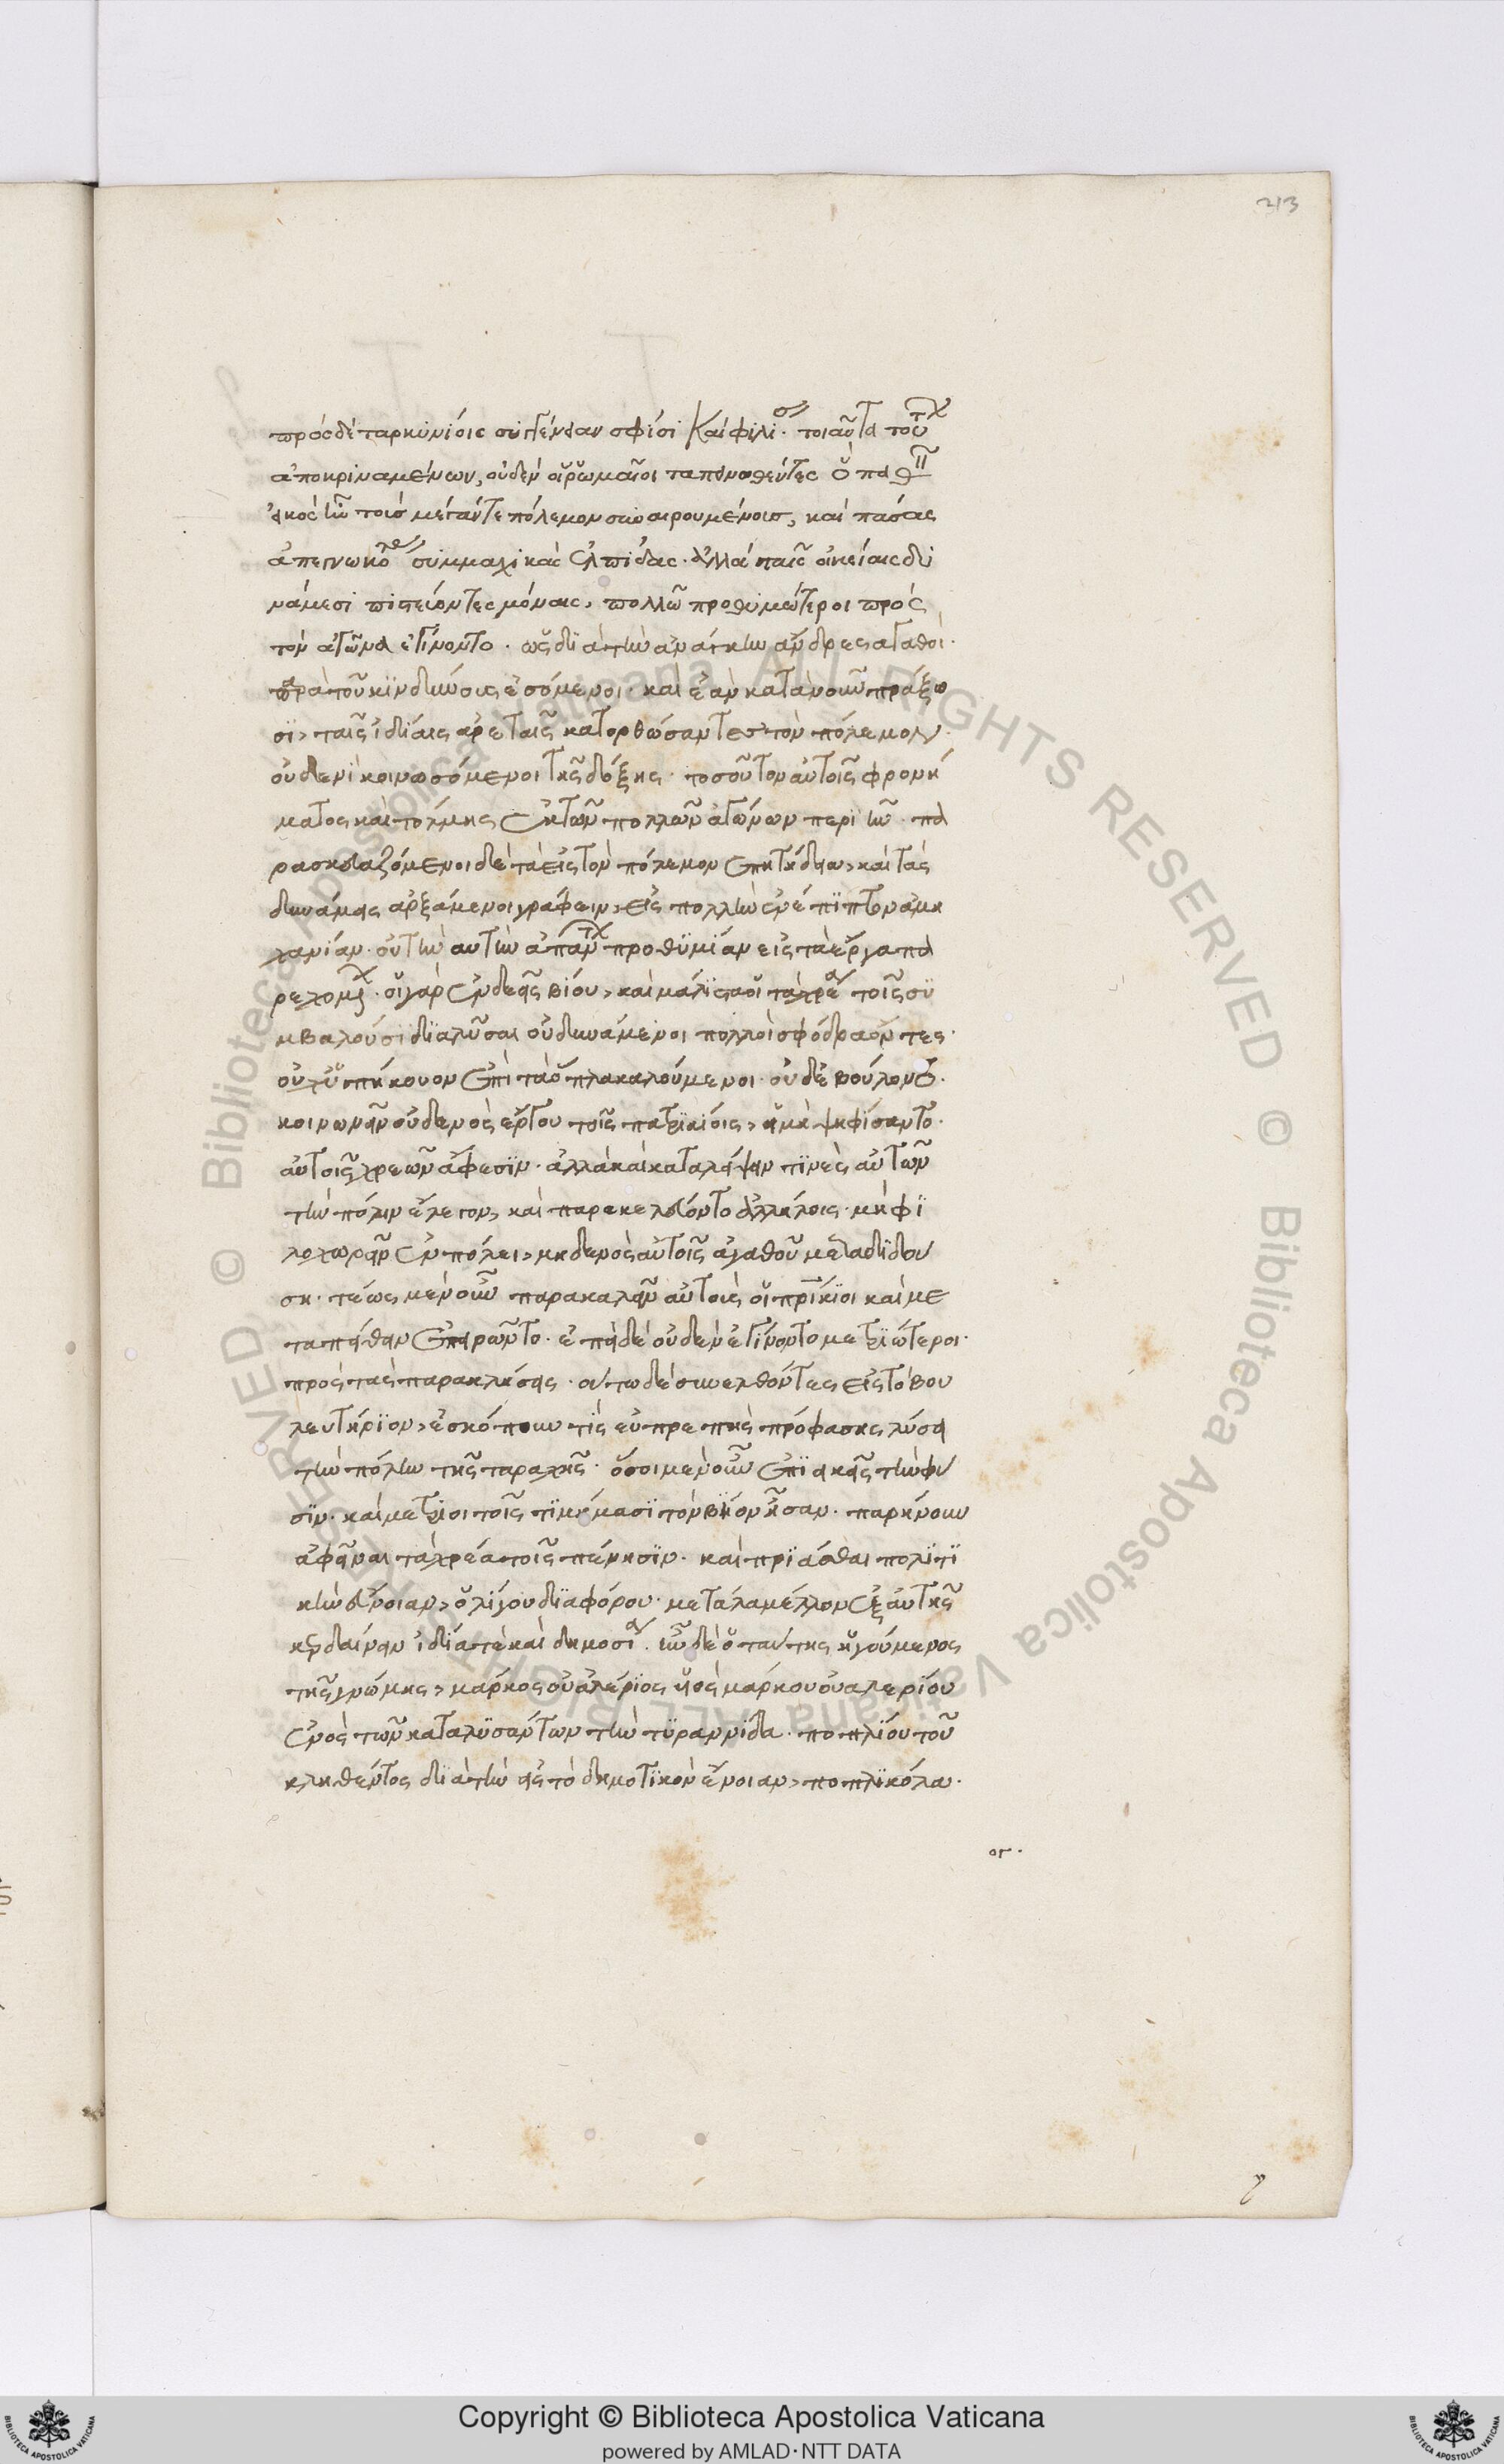 213
πρὸς δὲ ταρκυνίοις συγγένειαν σφίσι καὶ φιλί· τοιαῦτα τούτ
ἀποκριναμένων, οὐδὲν οἱ ῥωμαῖοι ταπεινωθέντες ὃ παθ
εἰκὸς ἦν τοὺσ μέγαν τε πόλεμον αιρουμένοισ, καὶ πάσας
ἀπεγνωκό συμμαχικὰς ἐλπίδας· ἀλλὰ ταῖς οἰκείαις δυ
νάμεσι πιστεύοντες μόναις, πολλῶ προθυμώτεροι πρὸς
τὸν ἀγῶνα ἐγίνοντο· ὡς διὰ τὴν ἀνάγκην ἄνδρες ἀγαθοὶ·
παρὰ τοὺς κινδύνους ἐσόμενοι· καὶ ἐὰν κατὰ νοῦν πράξω
σι, ταῖς ἰδίαις ἀρεταῖς κατορθώσαντεσ τὸν πόλεμον·
οὐδενὶ κοινωσόμενοι τῆς δόξης· τοσοῦτον αὐτοῖς φρονή
ματος καὶ τόλμης ἐκ τῶν πολλῶν ἀγώνων περιῆν· πα
ρασκευαζόμενοι δὲ τὰ εἰς τὸν πόλεμον ἐπιτήδεια, καὶ τὰς
δυνάμεις ἀρξάμενοι γράφειν, εἰς πολλὴν ἐνέπιπτον ἀμη
χανίαν· οὐ τὴν αυτὴν ἁπάντ προθυμίαν εἰς τὰ ἔργα πα
ρεχομ· οἱ γὰρ ἐνδεεῖς βίου, καὶ μάλιστα οἱ τὰ χρέα τοῖς συ
μβαλοῦσι διαλῦσαι οὐ δυνάμενοι πολλοὶ σφόδρα ὄντες·
οὐχ ὑπήκουον ἐπὶ τὰ ὅπλα καλούμενοι· οὐδὲ βούλοντο·
κοινωνεῖν οὐδενὸς ἔργου τοῖς πατρικίοις, εἰ μὴ ψηφίσαντο·
αὐτοῖς χρεῶν ἄφεσιν· ἀλλὰ καὶ καταλείψειν τινὲς αὐτῶν
τὴν πόλιν ἔλεγον, καὶ παρεκελεύοντο ἀλλήλοις· μὴ φι
λοχωρεῖν ἐν πόλει, μηδενὸς αὐτοῖς ἀγαθοῦ μεταδιδού
ση· τέως μὲν οὖν παρακαλεῖν αὐτοὺς οἱ πρίκιοι καὶ με
ταπείθειν ἐπειρῶντο· ἐπεὶ δὲ οὐδὲν ἐγίνοντο μετριώτεροι·
πρὸς τὰς παρακλήσεις· οὕτω δὲ συνελθόντες εἰς τὸ βου
λευτήριον, ἐσκόπουν τίς εὐπρεπὴς πρόφασης λύσει
τὴν πόλιν τῆς ταραχῆς· ὅσοι μὲν οὖν ἐπιεικεῖς τὴν φύ
σιν· καὶ μέτριοι τοῖς τιμήμασι τὸν βίον ἦσαν· παρήνουν
ἀφεῖναι τὰ χρέα τοῖς πένησιν· καὶ πρίασθαι πολιτι
κὴν εὔνοιαν, ὀλίγου διαφόρου· μεγάλα μέλλον ἐξ αὐτῆς
κερδαίνειν ἰδία τὲ καὶ δημοσί· ἦν δὲ ὁ ταύτης ἡγούμενος
τῆς γνώμης, μάρκος οὐαλέριος υἱὸς μάρκου οὐαλερίου
ἑνὸς τῶν καταλυσάντων τὴν τυραννίδα· ποπλίου τοῦ
κληθέντος διὰ τὴν εἰς τὸ δημοτικὸν εὔνοιαν, ποπλικόλα·